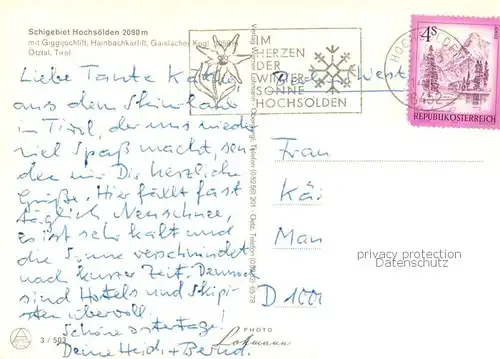 Schigebiet Hochsölden 2090 m
mit Giggijochlift, Hainbachkarlift, Gaislacher Kogl 3058 m
Ötztal, Tirol
IM
HERZEN
DER
WINTER-
SONNE
HOCHSÖLDEN
4S
REPUBLIK ÖSTERREICH
Liebe Tante
aus dem Skiurlaub
in Tirol, der uns wieder
viel Spaß macht, sen-
den wir Dir herzliche
Grüße. Hier fällt fast
täglich Neuschnee,
es ist sehr kalt und
die Sonne verschwindet
nach kurzer Zeit. Dennoch
sind Hotels und Skipi-
sten übervoll.
Schöne Ostertage!
Deine Heidi + Bernd.
Frau
Kä
Man
D 1000
privacy protection
Datenschutz
3 / 503
PHOTO
Lohmann